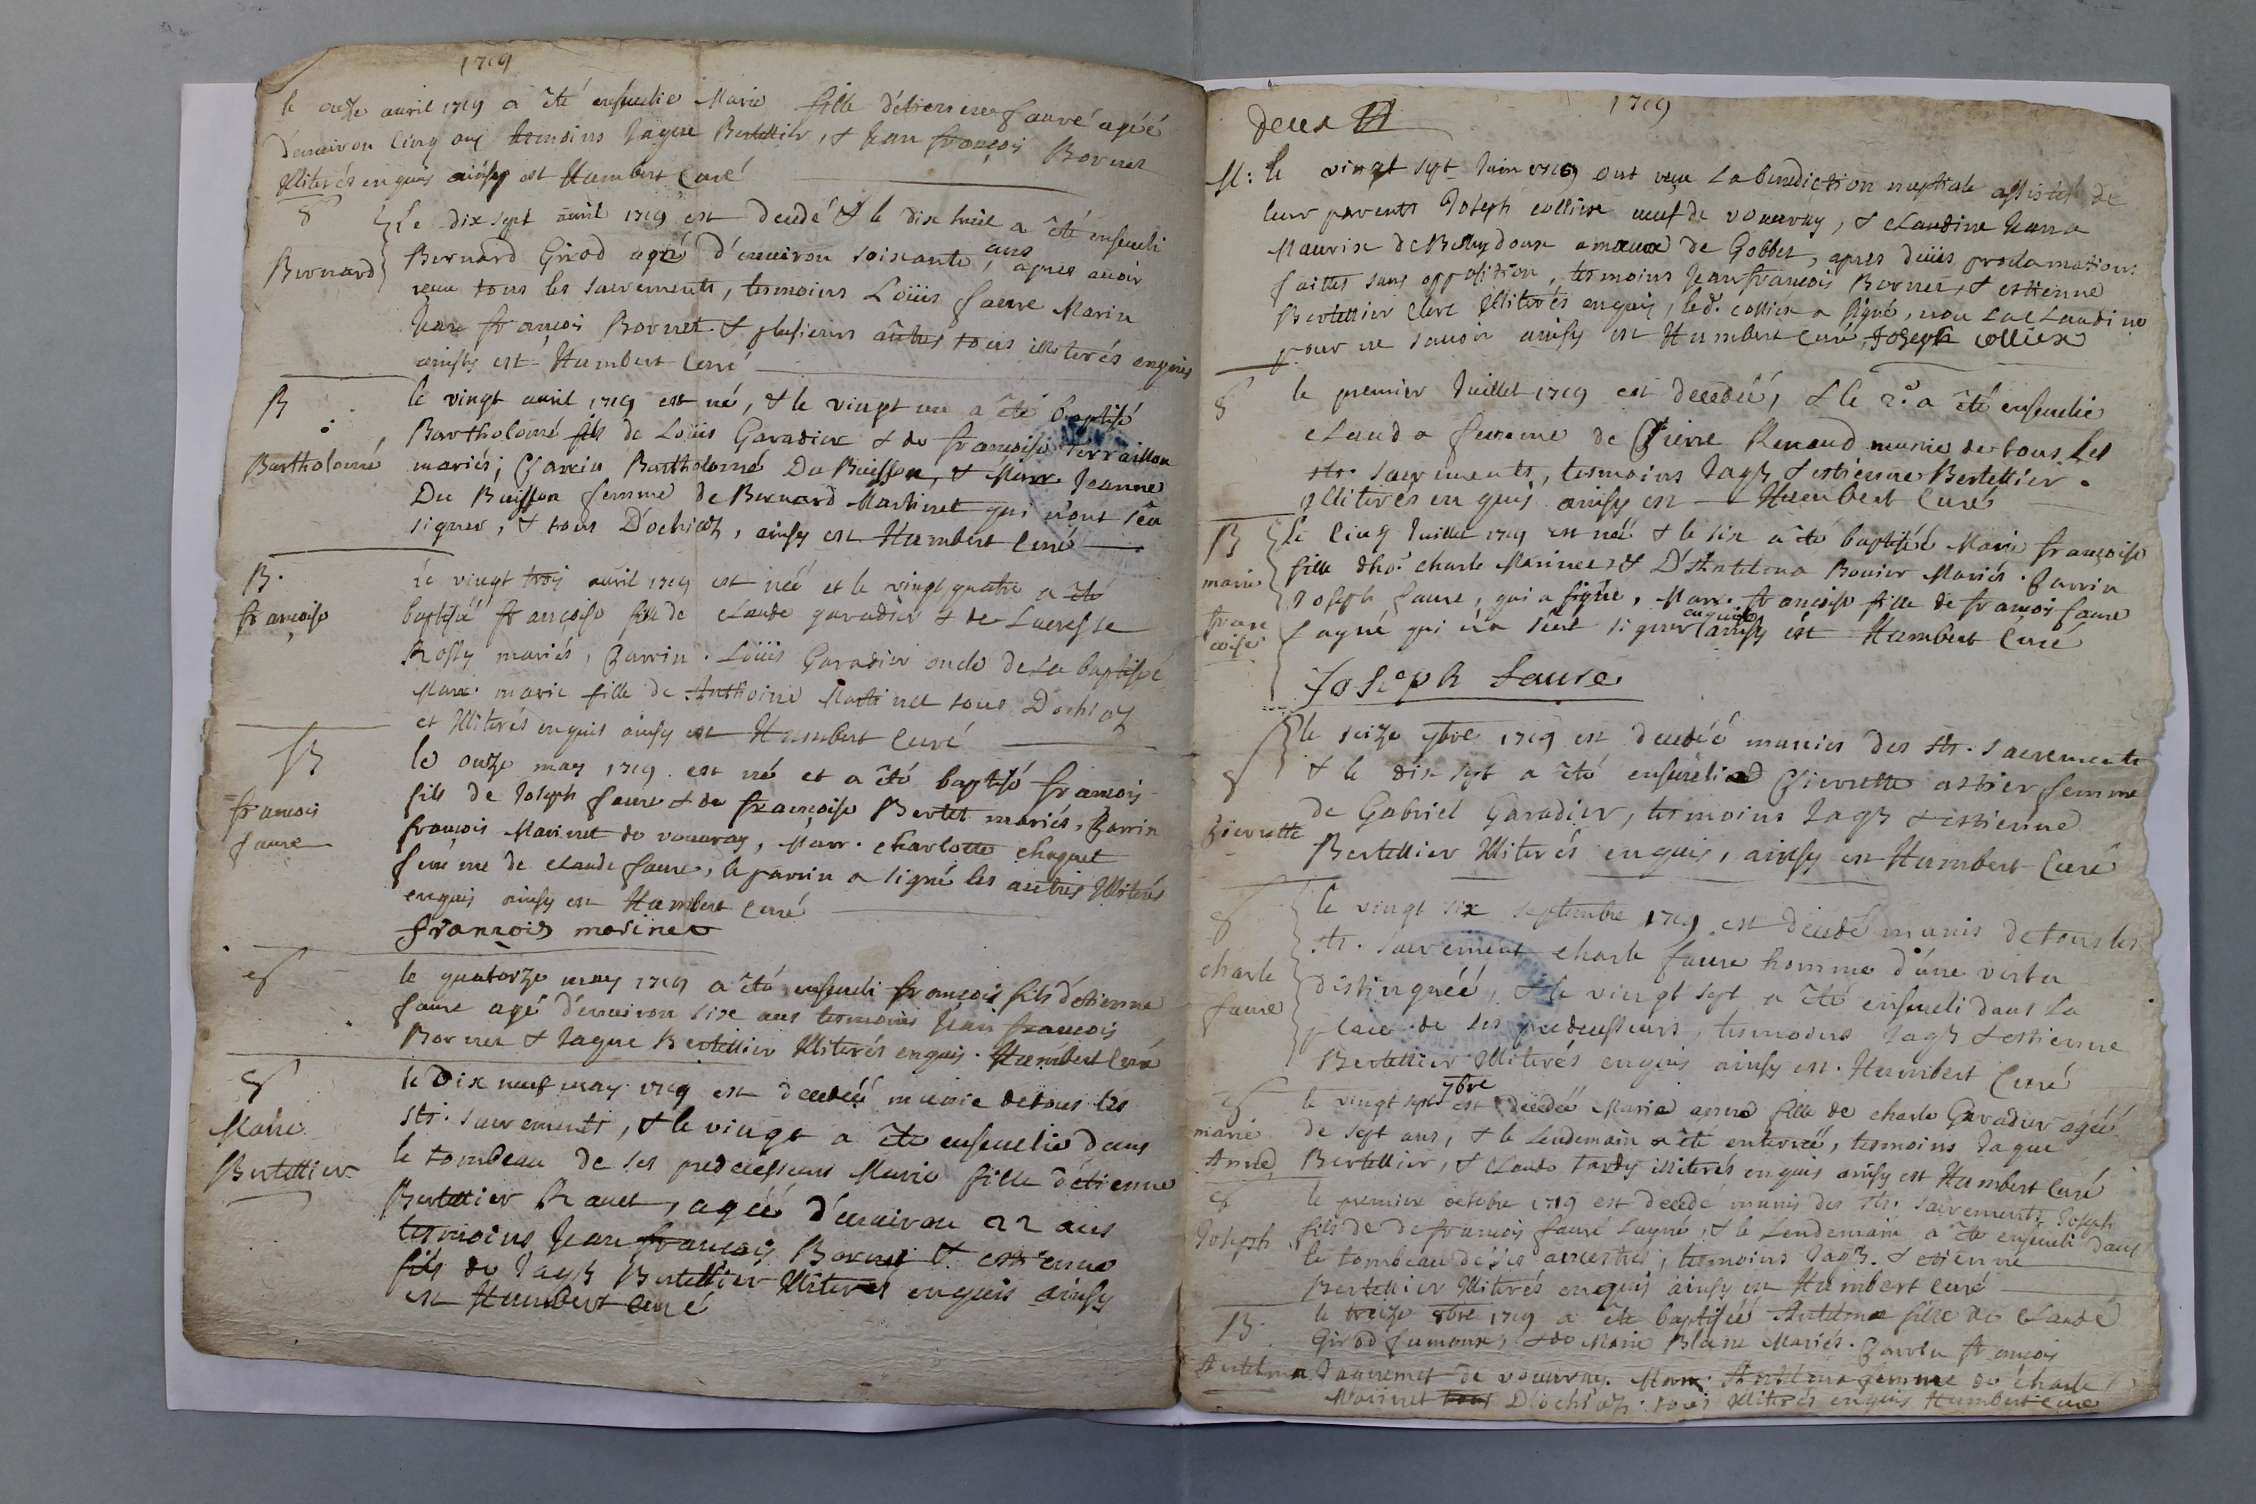 1719
le onze auril 1719 a êté enseuelie Marie fille d'étienne faure agéé
d'enuiron cinq ans temoins Jaque Bertellier, & Jean françois Bornet
illiterés enquis ainsy est Humbert Curé
Le dix sept auril 1719 est decedé & le dix huit a êté enseueli
Bernard Bernard Girod agé d'enuiron soixante ans, apres auoir
receu tous les sacrements, tesmoins Loüis faure Marin
Jean françois Bornet & plusieurs autres tous illiterés enquis
ainsy est Humbert Curé
B le vingt auril 1719 est né, & le vingt un a êté baptisé
Bartholomé fils de Loüis Garadier & de françoise terraillon
Bartholomé mariés; Parrin Bartholomé Du Buisson, & Marr. Jeanne
Du Buisson femme de Bernard Martinet qui n'ont sçu
signer, & tous D'ochiaz, ainsy est Humbert Curé
B. Le vingt trois auril 1719 est néé et le vingt quatre a êté
françoise baptiséé françoise fille de Claude garadier & de Lucresse
Rossy mariés, Parrin. Loüis Garadier oncle de La baptiséé
Marr. marie fille de Anthoine Martinet tous D'ochiaz
et illiterés enquis ainsy est Humbert Curé
B le onze may 1719 est né et a êté baptisé françois
françois fils de Joseph faure & de françoise Bertet mariés, Parrin
faure françois Marinet de vouuray, Marr. Charlotte
femme de Claude faure, le parrin a signé les autres illiterés
enquis ainsy est Humbert Curé
françois marinet
le quatorze may 1719 a êté enseueli françois fils d'étienne
faure agé d'enuiron six ans tesmoins Jean françois
Bornet & Jaque Bertellier illiterés enquis. Humbert Curé
le Dix neuf may 1719 est decedéé munie de tous les
Marie sts. sacrements, & le vingt a êté enseuelie dans
Bertellier le tombeau de ses predecesseurs Marie fille d'étienne
Bertellier, agéé d'enuiron 22 ans
tesmoins Jean françois Bornet & estienne
fils de Jaqz Bertellier illiterés enquis ainsy
est Humbert Curé
1719
deux
M: le vingt sept Juin 1719 ont receu La benediction nuptiale assistés de
leurs parents Joseph collier de vouuray, & Claudine
Maurix de Gobbet, apres proclamations
faittes sans opposition, tesmoins Jean françois Bornet, & estienne
Bertellier Clerc illiterés enquis, led. collier a signé, non La Claudine
pour ne sauoir ainsy est Humbert Curé, Joseph collier
le premier Juillet 1719 est decedéé, & le 2e. a êté enseuelie
Clauda femme de Pierre Renaud munie de tous Les
sts. sacrements, tesmoins Jaqz & estienne Bertellier.
illiterés enquis ainsy est Humbert Curé
B Le Cinq Juillet 1719 est néé & le six a êté baptiséé Marie françoise
marie fille d'ho. charle Marinet & D'Antelma Bouier Mariés. Parrin
Joseph faure, qui a signé, Marr. françoise fille de françois faure
fran
çoise L'ayné qui n'a sceut signer enquise ainsy est Humbert Curé
Joseph Faure
le seize 7bre 1719 est decedéé munies des sts. sacrements
& le dix sept a êté enseuelie Pierrette astier femme
Pierrette de Gabriel Garadier, tesmoins Jaqz & estienne
Bertellier illiterés enquis, ainsy est Humbert Curé
le vingt six septembre 1719 est decedé munis de tous les
charle sts. sacrement charle faure homme d'une vertu
faure distinguéé, & le vingt sept a êté enseueli dans La
place de ses predecesseurs, tesmoins Jaqz & estienne
Bertellier illiterés enquis ainsy est. Humbert Curé
le vingt sept 7bre est decedéé Marie anne fille de charle Garadier agéé
marie de sept ans, & le Lendemain a êté enterréé, tesmoins Jaque
Anne Bertellier, & Claude tardy illiterés enquis ainsy est Humbert Curé
le premier octobre 1719 est decedé munis des sts. sacrements Joseph
Joseph fils de de françois faure Layné, & le Lendemain a êté enseueli dans
le tombeau de ses ancestres, tesmoins Jaqz. & estienne
Bertellier illiterés enquis ainsy est Humbert Curé
B. le treize 8bre 1719 a êté baptiséé Antelma fille de Claude
Girod, & de Marie Blanc Mariés. Parrin françois
Antelma Jaquemet de vouuray. Marr. Antelma femme de charle
Marinet tous D'ochiaz. tous illiterés enquis Humbert Curé